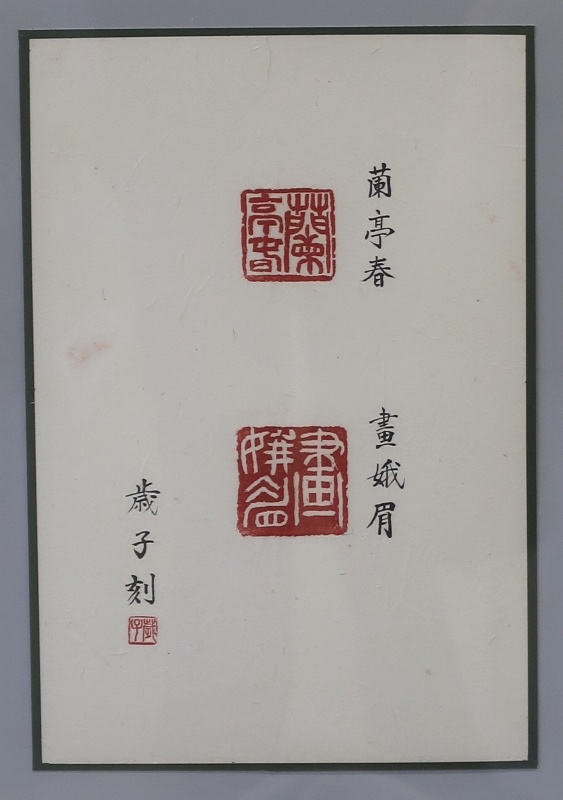 蘭亭春
蘭亭春
畫娥眉
畫娥眉
歳子刻
歳子